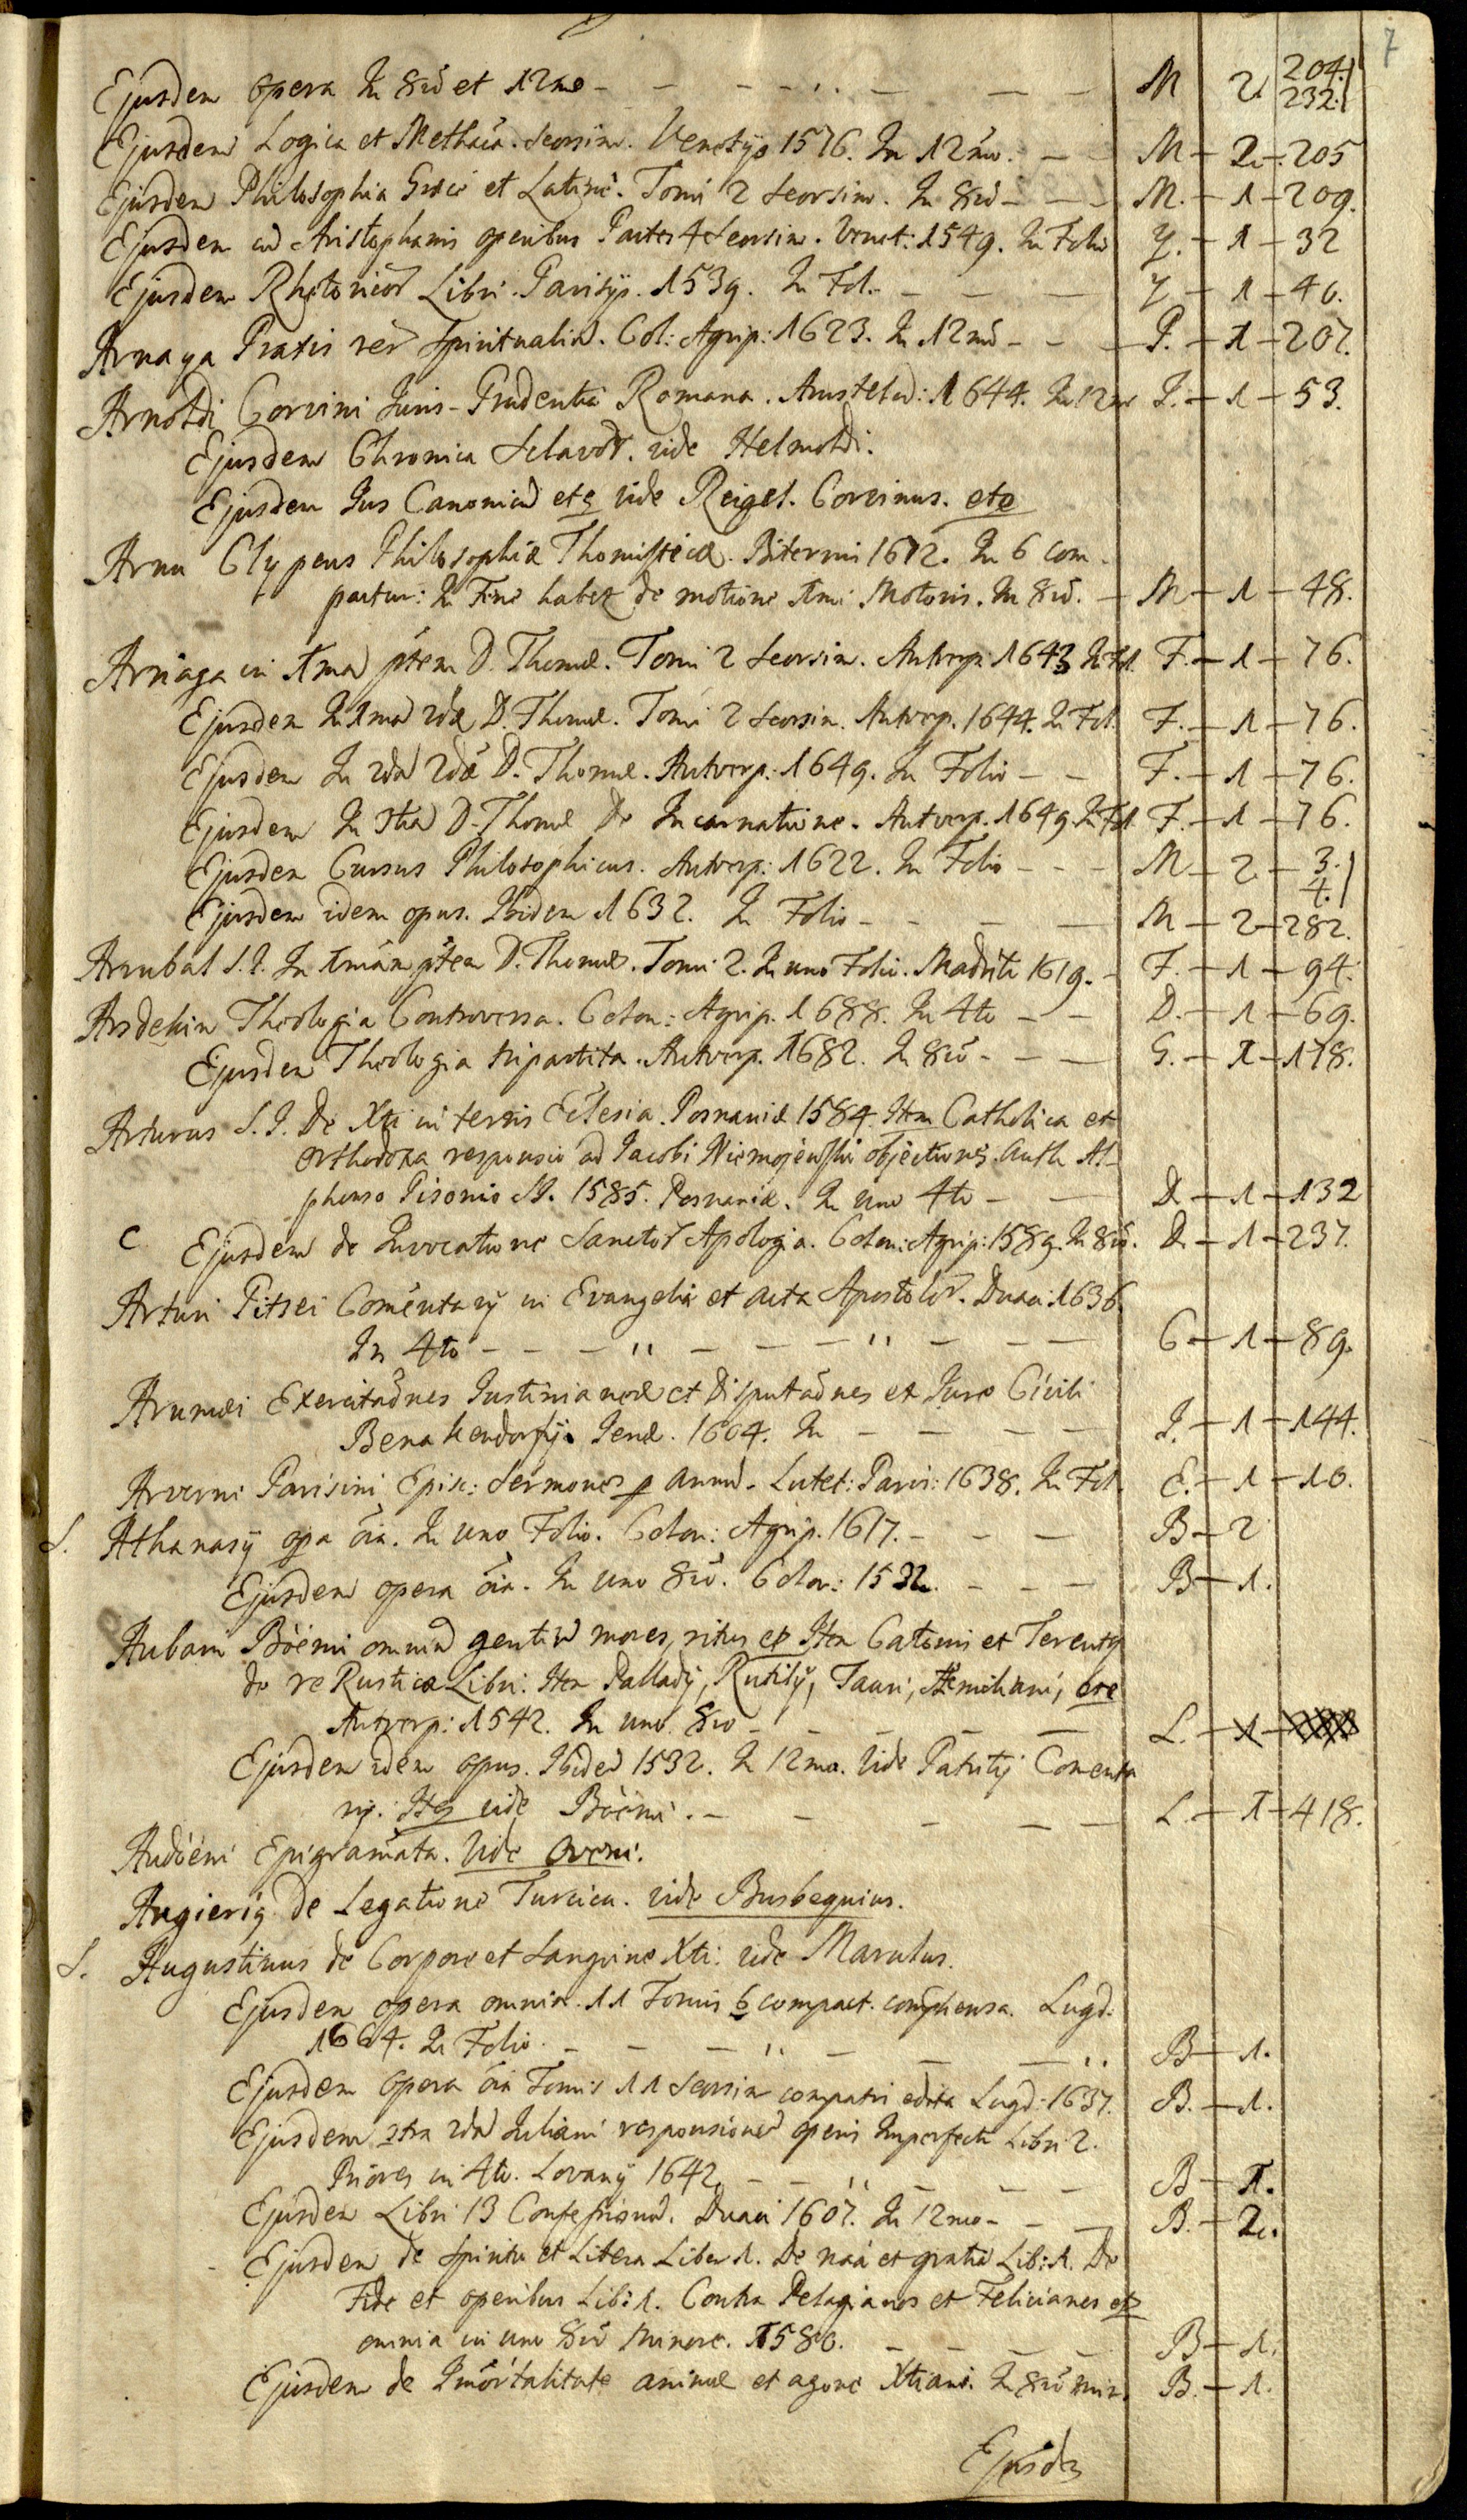 7
Ejusdem opera In 8vo et 12mo - - - - M 2. 204. 232.
Ejusdem Logica et Methaca. seorsim. Venetijs 1576. In 12mo. - - M - 2 - 205
Ejusdem Philosophia Grece et Latine. Tomi 2 seorsim. In 8vo - - - M. - 1 - 209.
Ejusdem cu Aristophanis operibus Partes 4 seorsim. Venet: 1549. In Folio Y. - 1 - 32
Ejusdem Rhetoricor Libri. Parisijs. 1539. In Fol. - - - Y - 1 - 40.
Arnaya Praxis rer spiritualiu. Col: Agrip: 1623. In 12mo - - - P. - 1 - 207.
Arnoldi Corvini Juris-Prudentia Romana. Amstelod: 1644. In 12mo J. - 1 - 53.
Ejusdem Chronica Sclavor. vide Helmoldi.
Ejusdem Jus Canonicu etc vide Reigel. Corvinus. etc
Arnu Clypeus Philosophiæ Thomisticæ. Biterris 1672. In 6 com-
partur: In Fine habet de motione 1mi Motoris. In 8vo. - M - 1 - 48.
Arriaga in 1ma ptem D. Thomæ. Tomi 2 seorsim. Antverp: 1643 In Fol. F. - 1 - 76.
Ejusdem In 1ma 2dæ D. Thomæ. Tomi 2 seorsim. Antverp. 1644. In Fol. F. - 1 - 76.
Ejusdem In 2da 2dæ D. Thomæ. Antverp: 1649. In Folio - - F. - 1 - 76.
Ejusdem In 3tia D. Thomæ De Incarnatione. Antverp. 1649. In Fol. F. - 1 - 76.
Ejusdem Cursus Philosophicus. Antverp: 1622. In Folio - - - M - 2 - 3. 4.
Ejusdem idem opus. Ibidem 1632. In Folio - - - - M - 2 - 282.
Arrubal S.J. In 1mam ptem D. Thomæ. Tomi 2. In uno Folio. Madriti 1619. - F. - 1 - 94.
Arsdekin Theologia Controversa. Colon: Agrip. 1688. In 4to - - D. - 1 - 69.
Ejusdem Theologia tripartita. Antverp. 1682. In 8vo - - - G. - 1 - 178.
Arturus S.J. De Xti in terris Eclesia. Posnaniæ 1584. Item Catholica et
orthodoxa responsio ad Jacobi Niemojewski objectiones. auth Al-
phonso Pisonio SJ. 1585. Posnaniæ. In uno 4to - - D - 1 - 132
C Ejusdem de Invocatione Sanctor Apologia. Colon: Agrip: 1589. In 8vo. D. - 1 - 237.
Arturi Pitsei Comentarij in Evangelia et acta Apostolor. Duaci: 1636.
In 4to - - - " - - - " - - - C - 1 - 89.
Arumæi Exercitaõnes Justinianeæ et Disputaõnes et Jure Civili
Benakendorffij. Jenæ. 1604. In - - - - J. - 1 - 144.
Arverni Parisini Epise: Sermones p annu. Lutet: Paris: 1638. In Fol. E. - 1 - 10.
S. Athanasij opa oia. In uno Folio. Colon: Agrip. 1617. - - - B - 2
Ejusdem opera oia. In uno 8vo. Colon: 1532. - - - B - 1.
Aubani Böemi omniu gentiu mores, ritus etc Item Catonis et Terentij
de re Rustica Libri. Item Palladij, Rutilij, Tauri, Æmiliani, etc
Antverp: 1542. In uno. 8vo - - - - L. - 1 -
Ejusdem idem opus. Ibidem 1532. In 12mo. Vide Patritij Comenta
rij. Itez vide Böemi. - - - - - L. - 1 - 418.
Audöeni Epigramata. Vide Oveni.
Augierij de Legatione Turcica. vide Busbequius.
S. Augustinus de Corpore et Sanguine Xti: vide Marulus.
Ejusdem opera omnia 11 Tomis 6 compact. comphensa. Lugd:
1664. In Folio. - - - " - - - " B - 1.
Ejusdem opera oia Tomis 11 seorsim compactis edita Lugd: 1637. B. - 1.
Ejusdem ctra 2da Juliani responsione operis Imperfecti Libri 2.
Priores in 4to. Lovanij 1642. - - " - - - B - 1.
Ejusdem Libri 13 Confessionu. Duaci 1607. In 12mo - - - B. - 2.
Ejusdem de Spiritu et Litera Liber 1. De naa et gratia Lib: 1. De
Fide et operibus Lib: 1. Contra Pelagianos et Felicianos etc
omnia in uno 8vo minore. 1580. - - - - B - 1.
Ejusdem de Imortalitate animæ et agone Xtiano. In 8vo min. B. - 1.
Ejusdem